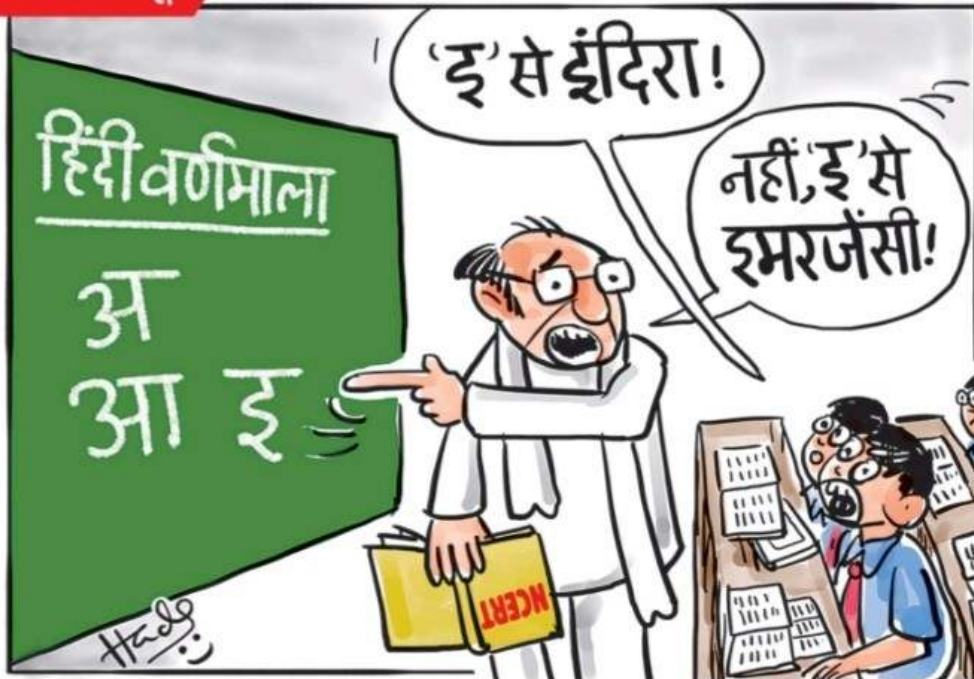 हिंदी वर्णमाला
अ
आ इ
'इ' से इंदिरा!
नहीं, 'इ' से
इमरजेंसी!
NCERT